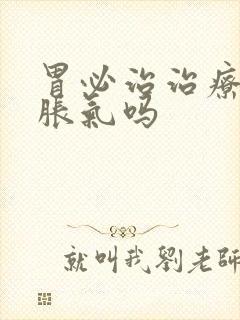 胃必治治療
脹氣吗
就叫我劉老師